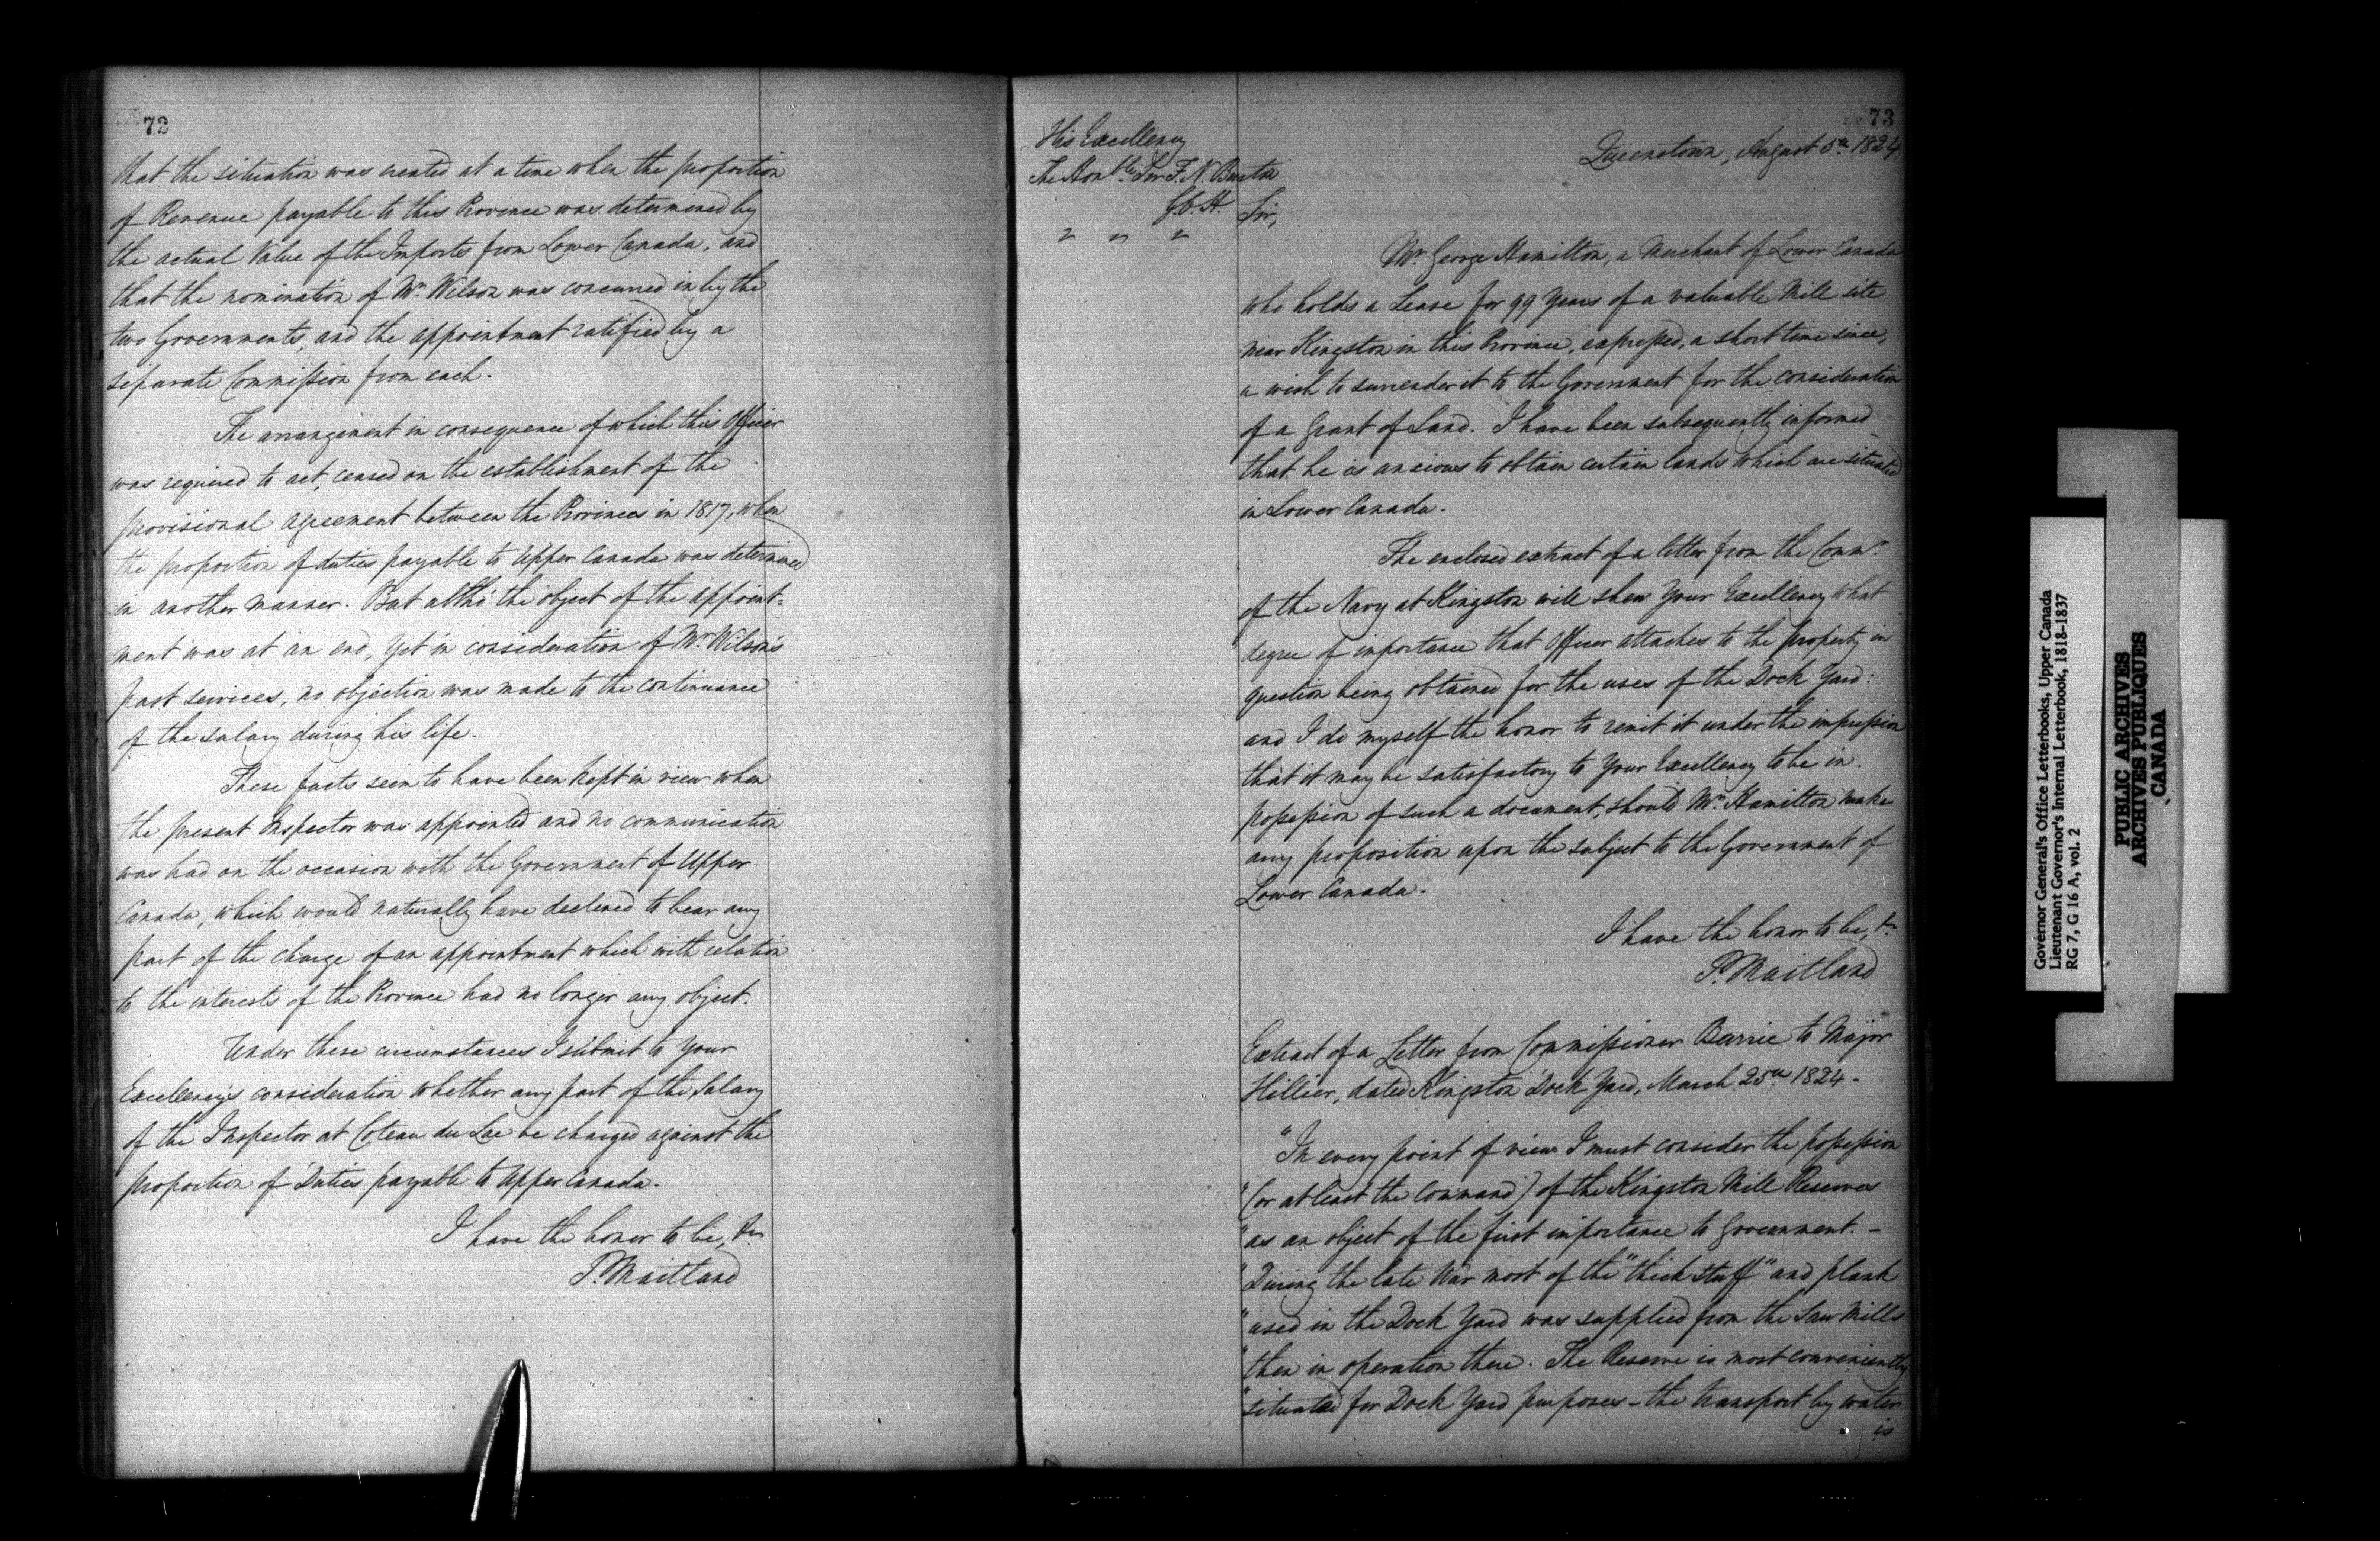 72
that the situation was created at a time when the proportion
of Revenue payable to this Province was determined by
the actual Value of the Imports from Lower Canada, and
that the nomination of Mr. Wilson was concurred in by the
two Governments, and the appointment ratified by a
separate Commission from each.
The arrangement in consequence of which this Officer
was required to act, ceased on the establishment of the
provisional agreement between the Provinces in 1817, when
the proportion of duties payable to Upper Canada was determined
in another manner. But altho' the object of the appoint=
ment was at an end, yet in consideration of Mr. Wilson's
past services, no objection was made to the continuance
of the salary during his life.
These facts seem to have been kept in view when
the present Inspector was appointed and no communication
was had on the occasion with the Government of Upper
Canada, which would naturally have declined to bear any
part of the charge of an appointment which with relation
to the interests of the Province had no longer any object.
Under these circumstances I submit to Your
Excellency's consideration whether any part of the salary
of the Inspector at Coteau du Lac be charged against the
proportion of Duties payable to Upper Canada.
I have the honor to be, &c
P. Maitland
73
His Excellency
The Honble. Sir F. N. Burton
G.C.H.
" " "
Queenstown, August 5th 1824
Sir,
Mr George Hamilton, a Merchant of Lower Canada
who holds a Lease for 99 Years of a valuable Mill site
near Kingston in this Province, expressed, a short time since,
a wish to surrender it to the Government for the consideration
of a Grant of Land. I have been subsequently informed
that he is anxious to obtain certain lands which are situated
in Lower Canada.
The enclosed extract of a letter from the Commr.
of the Navy at Kingston will shew Your Excellency what
degree of importance that Officer attaches to the property in
question being obtained for the uses of the Dock Yard:
and I do myself the honor to remit it under the impression
that it may be satisfactory to Your Excellency to be in
possession of such a document, should Mr. Hamilton make
any proposition upon the subject to the Government of
Lower Canada.
I have the honor to be, &c
P. Maitland
Extract of a Letter from Commissioner Barrie to Major
Hillier, dated Kingston Dock Yard, March 25th 1824 -
"In every point of view I must consider the possession
"(or at least the Command) of the Kingston Mill Reserves
"as an object of the first importance to Government. -
"During the late War most of the "thick stuff" and plank
"used in the Dock Yard was supplied from the Saw Mills
"then in operation there. The Reserve is most conveniently
"situated for Dock Yard purposes - the transport by water
is
Governor General's Office Letterbooks, Upper Canada
Lieutenant Governor's Internal Letterbook, 1818-1837
RG 7, G 16 A, vol. 2
PUBLIC ARCHIVES
ARCHIVES PUBLIQUES
CANADA